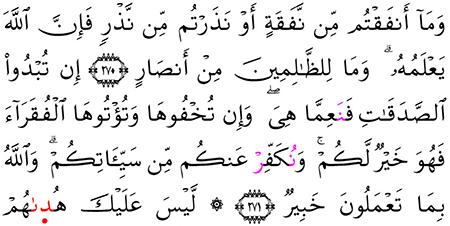 وَمَآ أَنفَقْتُم مِّن نَّفَقَةٍ أَوْ نَذَرْتُم مِّن نَّذْرٍ فَإِنَّ ٱللَّهَ
يَعْلَمُهُۥ ۗ وَمَا لِلظَّٰلِمِينَ مِنْ أَنصَارٍ ﴿٢٧٠﴾ إِن تُبْدُوا۟
ٱلصَّدَقَٰتِ فَنَعِمَّا هِىَ ۖ وَإِن تُخْفُوهَا وَتُؤْتُوهَا ٱلْفُقَرَآءَ
فَهُوَ خَيْرٌ لَّكُمْ ۚ وَنُكَفِّرْ عَنكُم مِّن سَيِّـَٔاتِكُمْ ۗ وَٱللَّهُ
بِمَا تَعْمَلُونَ خَبِيرٌ ﴿٢٧١﴾ ۞ لَّيْسَ عَلَيْكَ هُدَىٰهُمْ